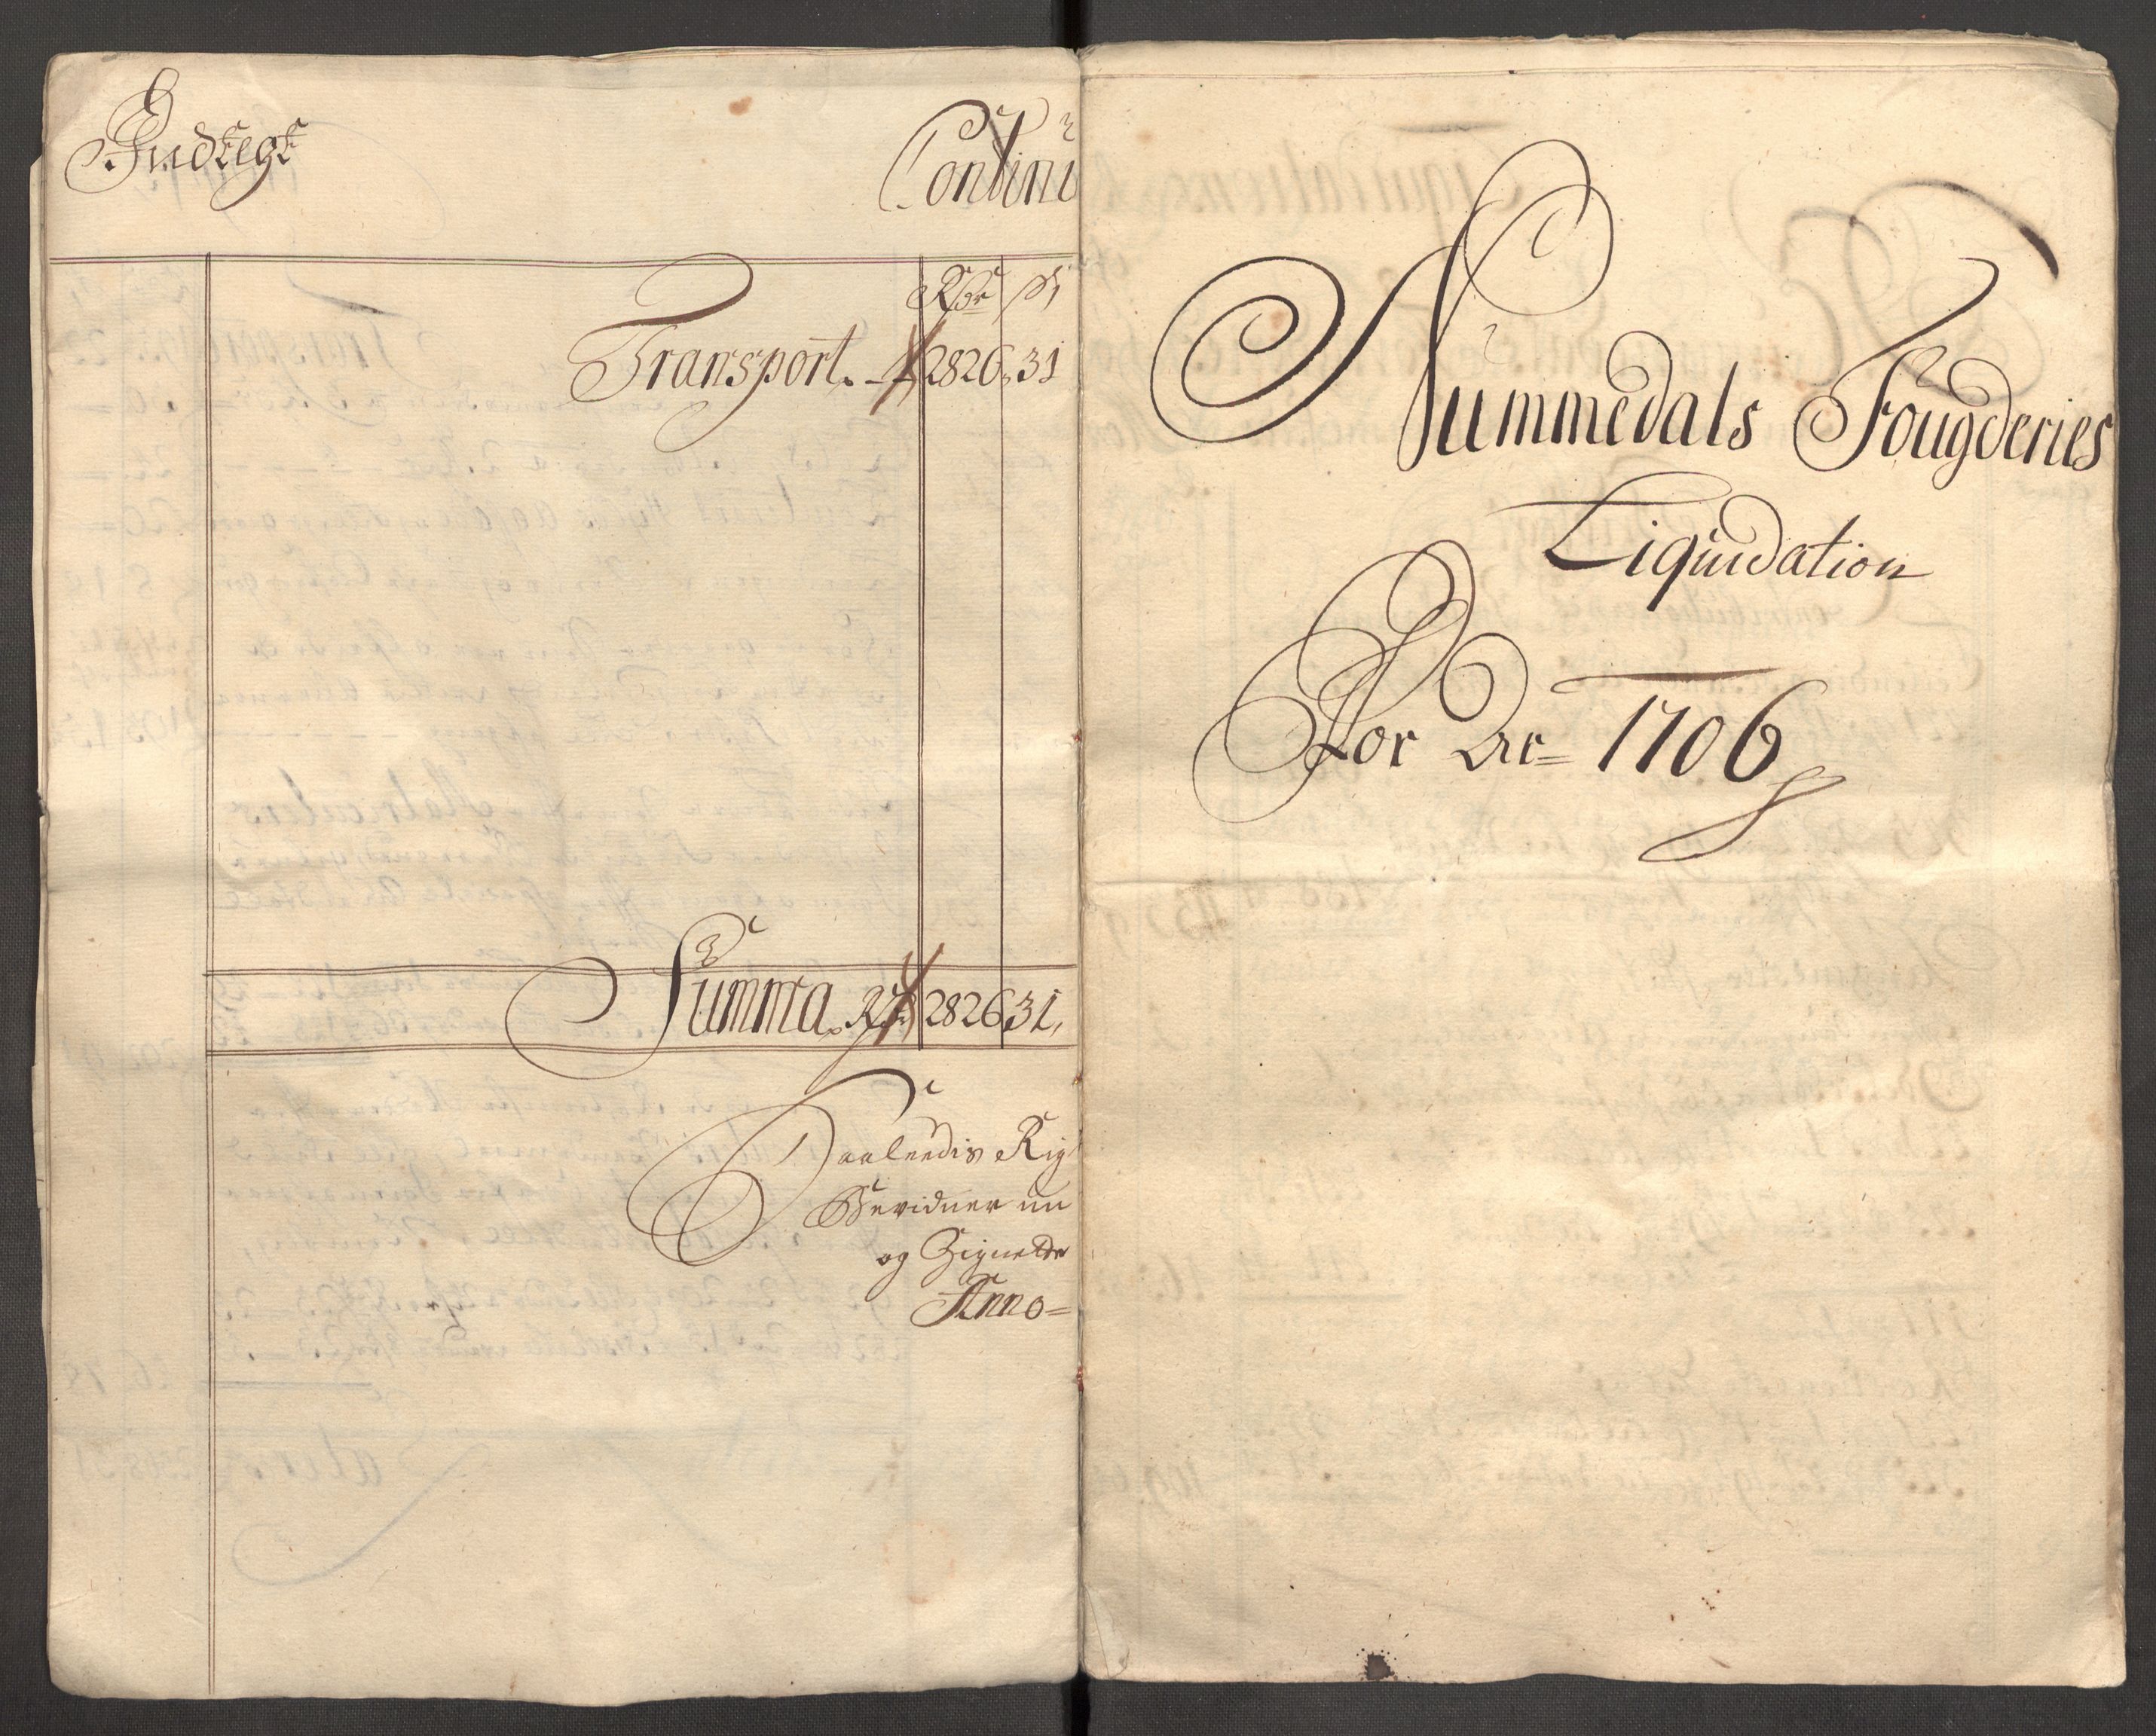 Indtegt
Continu
Rdr ß
Transport. 2826. 31
Summa. Rdr 2826 31,
Saaledis Rig
Bevidner un
og Zignette
Anno=
Nummedals Fougderies
Liquidation
For Aar= 1706